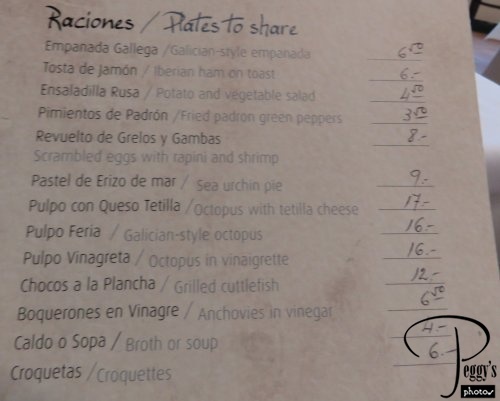 Raciones / Plates to share
Empanada Gallega / Galician-style empanada 6,50
Tosta de Jamón / Iberian ham on toast 6.-
Ensaladilla Rusa / Potato and vegetable salad 4,50
Pimientos de Padrón / Fried padron green peppers 3,50
Revuelto de Grelos y Gambas 8.-
Scrambled eggs with rapini and shrimp
Pastel de Erizo de mar / Sea urchin pie 9.-
Pulpo con Queso Tetilla / Octopus with tetilla cheese 17.-
Pulpo Feria / Galician-style octopus 16.-
Pulpo Vinagreta / Octopus in vinaigrette 16.-
Chocos a la Plancha / Grilled cuttlefish 12.-
Boquerones en Vinagre / Anchovies in vinegar 6,50
Caldo o Sopa / Broth or soup 4.-
Croquetas / Croquettes 6.-
Peggy's
photos